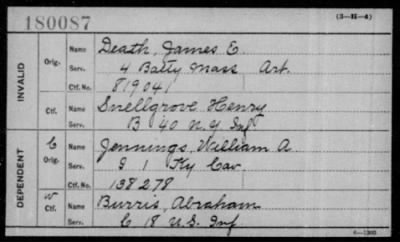 180087
(3-H-4)
INVALID
Orig.
Name Death, James E.
Serv. 4 Batty Mass Art.
Ctf. No. 819041
Ctf.
Name Snellgrove Henry
Serv. B 40 N.Y Inf
DEPENDENT
C
Orig.
Name Jennings, William A.
Serv. I 1 Ky Cav.
Ctf. No. 138278
W
Ctf.
Name Burris, Abraham
Serv. C 18 U.S. Inf
6—1300